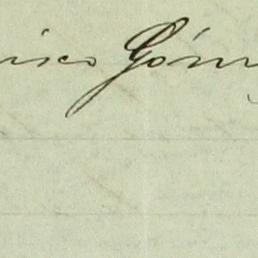 isco Góm